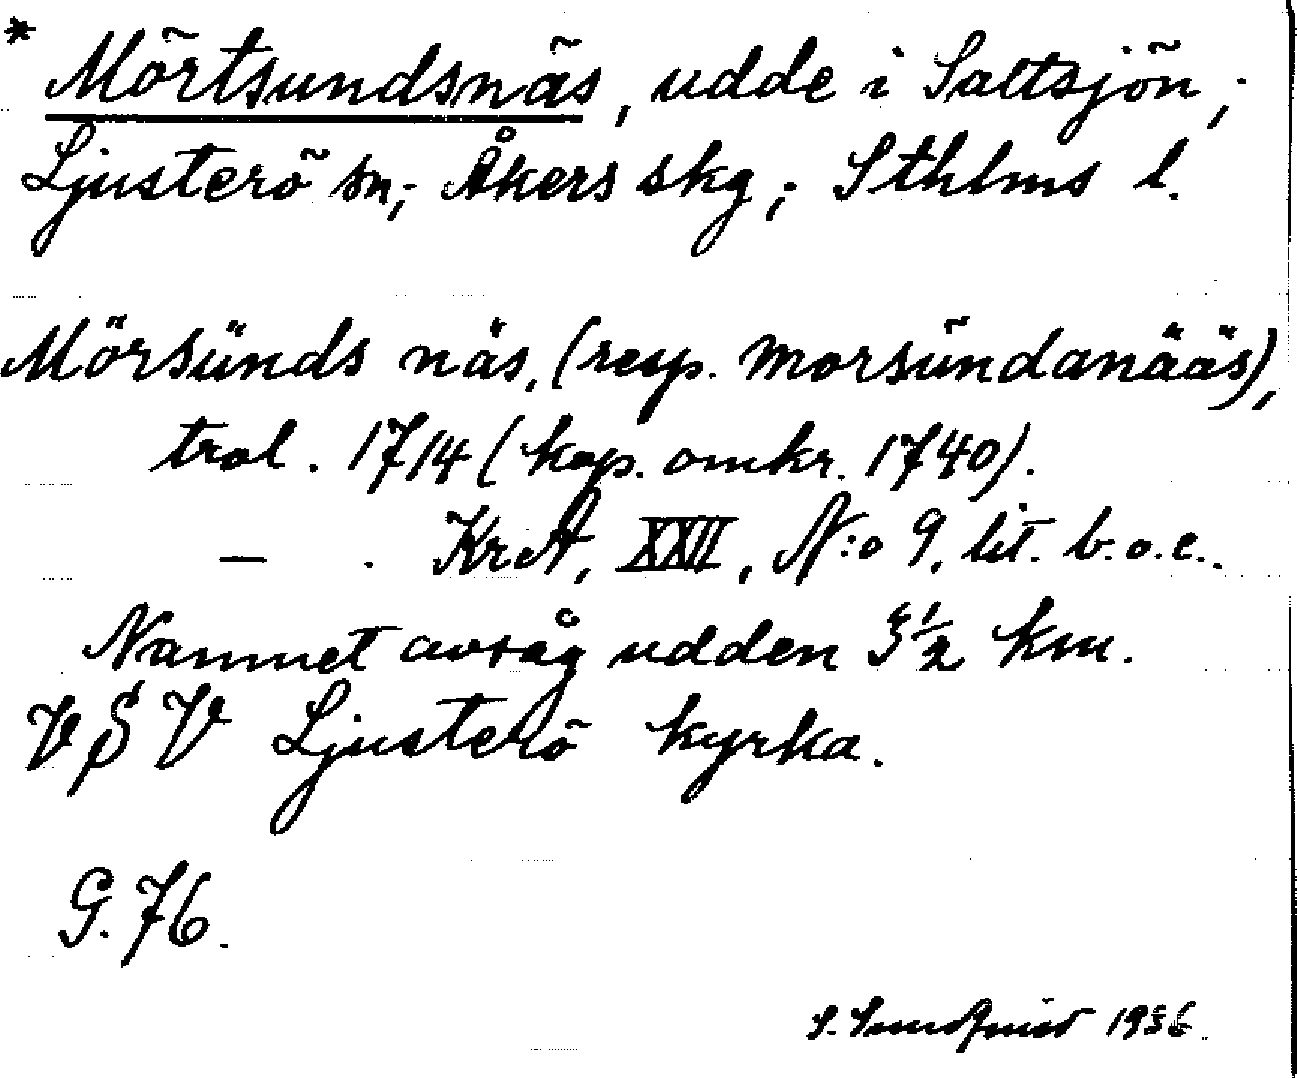 * Mörtsundsnäs, udde i Saltsjön,;
Ljusterö sn,; Åkers skg,; Sthlms l.
Mörsünds näs, (resp. Morsündanääs),
trol. 1714 (kop. omkr. 1740).
— . KrA, XXII, N:o 9, lit. b.o.c..
Namnet avsåg udden 3½ km.
VSV Ljusterö kyrka.
G. 76.
S. Sundquist 1936.